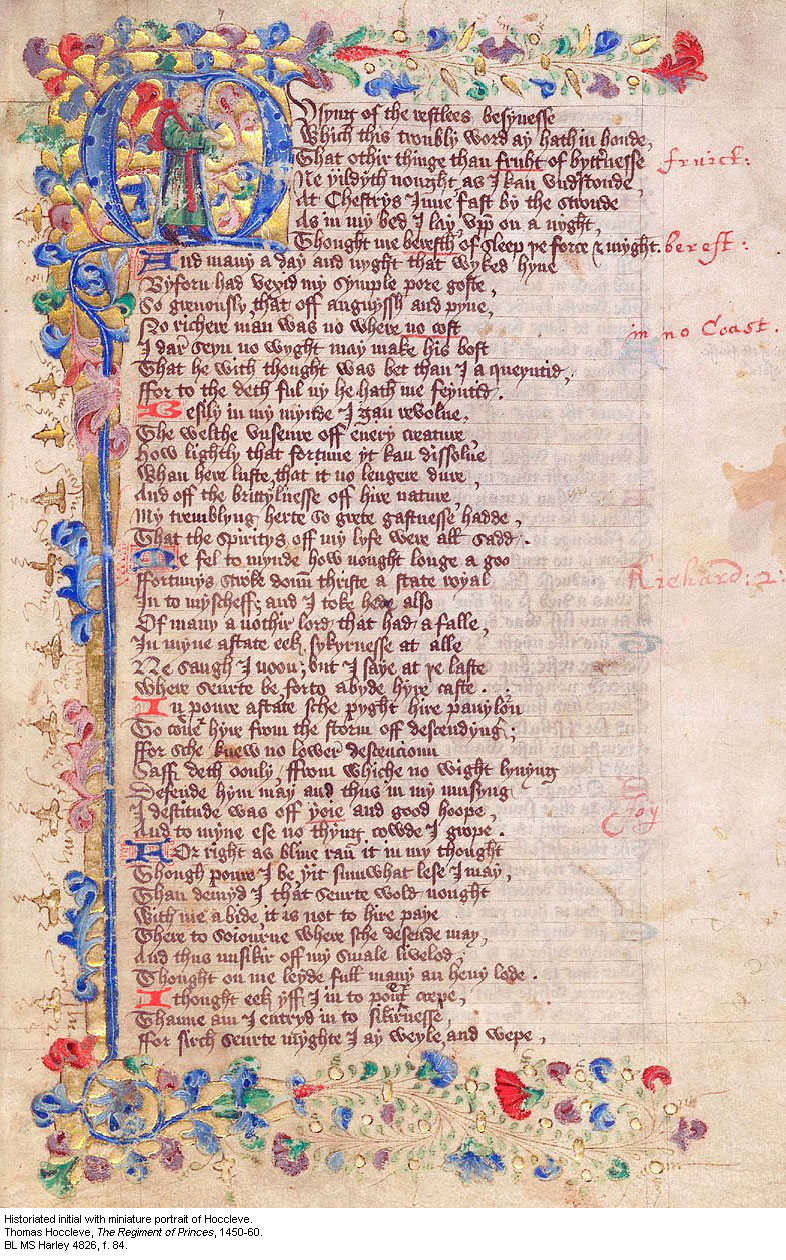 Musyng of the restlees besynesse
Which this troubly word ay hath in honde,
That othir thinge than fruht of byttrnesse
fruict:
Ne yildyth nought as I kan vndrstonde,
At Chestrys Inne fast by the stronde
As in my bed I lay, vpp on a nyght,
Thought me berefth of sleep þe force & myght.
bereft:
And many a day and nyght that wyked hyne
Byforn had vexid my symple pore goste,
So greuously, that off anguyssh and pyne,
No richere man was no where no cost
in no Coast.
I dar seyn no wyght may make his bost
That he with thought was bet than I aqueyntid,
ffor to the deth ful ny he hath me feyntid.
Besily in my mynde I gan revolue,
The welthe vnseure off euery creature,
How lightly that fortune yt kan dissolue
Whan here luste, that it no lengere dure,
And off the brittylnesse off hire nature,
My tremblyng herte so grete gastnesse hadde,
That the spiritys off my lyfe were all sadd.
Me fel to mynde how nought longe a goo
ffortunys stroke doun thriste a state royal
Richard: 2:
In to myscheff; and I toke hede also
Of many a nothir lord, that had a falle,
In myne astate eek, sykyrnesse at alle
Ne saugh I noon; but I saye at þe laste
Where seurte be, forto abyde hyre caste.
In poure astate sche pyght hire pauylon
To couer hyre from the storm off descendyng;
ffor sche knew no lower descencioun
Sauff deth oonly, ffrom whiche no wight lyuyng
Defende hym may and thus in my musyng
I destitude was off yoie and good hoope,
Joy
And to myne ese no thyng cowde I grope.
ffor right as bliue ran it in my thought
Though poure I be, yit sumwhat lese I may,
Than demyd I that seurte wold nought
With me abide, it is not to hire paye
There to soiourne where sche descende may,
And thus unsikir off my smale livelod,
Thought on me leyde full many an heuy lode.
I thought eek yff I in to pouert crepe,
Thanne am I entryd in to sikirnesse,
ffor sirch seurte myghte I ay weyle, and wepe,
Historiated initial with miniature portrait of Hoccleve.
Thomas Hoccleve, The Regiment of Princes, 1450-60.
BL MS Harley 4826, f. 84.